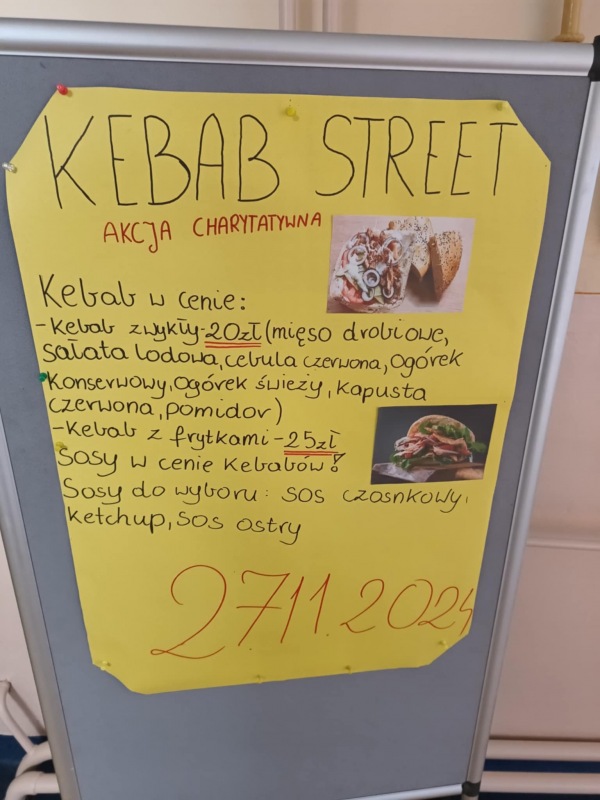 KEBAB STREET
AKCJA CHARYTATYWNA
Kebab w cenie:
-Kebab zwykły-20zł (mięso drobiowe,
sałata lodowa, cebula czerwona, ogórek
konserwowy, ogórek świeży, kapusta
czerwona, pomidor)
-Kebab z frytkami-25zł
Sosy w cenie Kebabów!
Sosy do wyboru: sos czosnkowy,
ketchup, sos ostry
27.11.2024